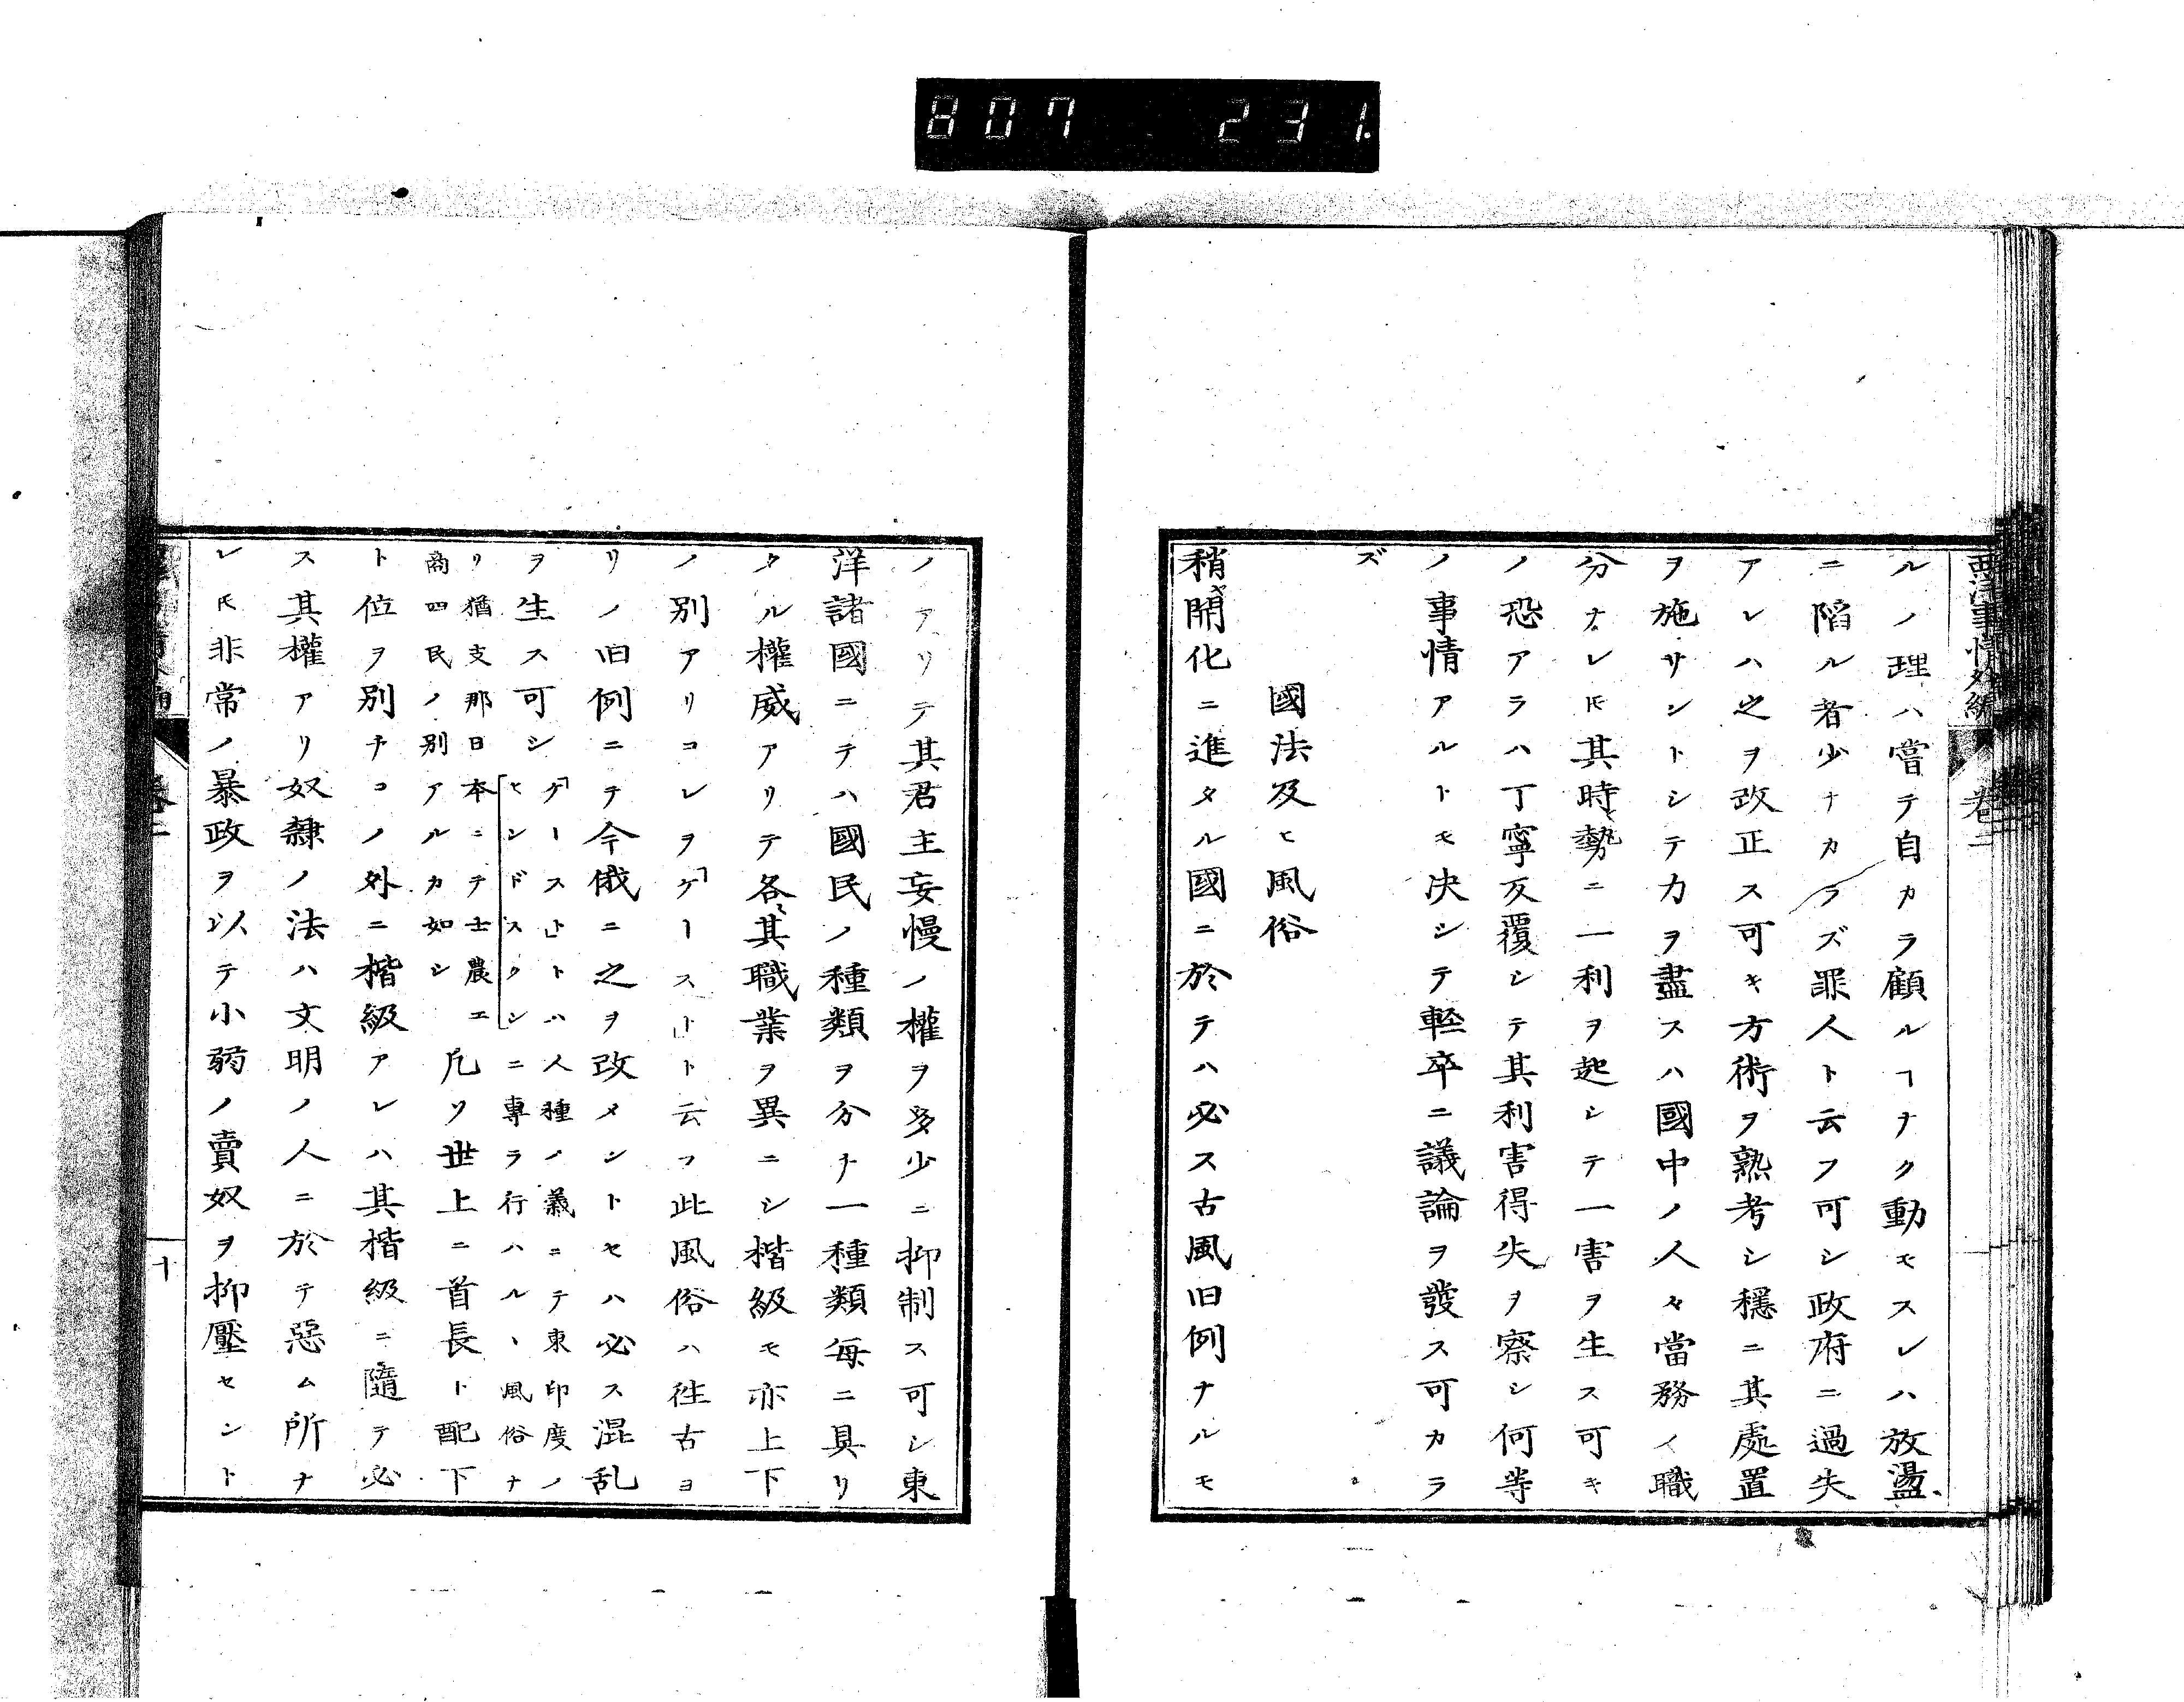 807 231.
西洋事情外編 卷二
ルノ理ハ嘗テ自カラ顧ルヿナク動モスレハ放盪、
ニ陷ル者少ナカラズ罪人ト云フ可シ政府ニ過失
アレハ之ヲ改正ス可キ方術ヲ熟考シ穩ニ其處置
ヲ施サントシテ力ヲ盡スハ國中ノ人々當務ノ職
分ナレ𪜈其時勢ニ一利ヲ起シテ一害ヲ生ス可キ
ノ恐アラハ丁寧反覆シテ其利害得失ヲ察シ何等
ノ事情アルトモ决シテ輕卒ニ議論ヲ發ス可カラ
ズ
國法及ヒ風俗
稍開化ニ進タル國ニ於テハ必ス古風旧例ナルモ
ノアリテ其君主妄慢ノ權ヲ多少ニ抑制ス可シ東
洋諸國ニテハ國民ノ種類ヲ分チ一種類每ニ具リ
タル權威アリテ各其職業ヲ異ニシ楷級モ亦上下
ノ別アリコレヲ「ケースト」ト云フ此風俗ハ徃古ヨ
リノ旧例ニテ今俄ニ之ヲ改メントセハ必ス混乱
ヲ生ス可シ「ケースト」トハ人種ノ義ニテ東印度ノ
ヒンドスタンニ專ラ行ハルヽ風俗ナ
リ猶支那日本ニテ士農工
商四民ノ別アルカ如シ凡ソ世上ニ首長ト配下
ト位ヲ別チコノ外ニ楷級アレハ其楷級ニ隨テ必
ス其權アリ奴隸ノ法ハ文明ノ人ニ於テ惡ム所ナ
レ𪜈非常ノ暴政ヲ以テ小弱ノ賣奴ヲ抑壓セント
卷二
十